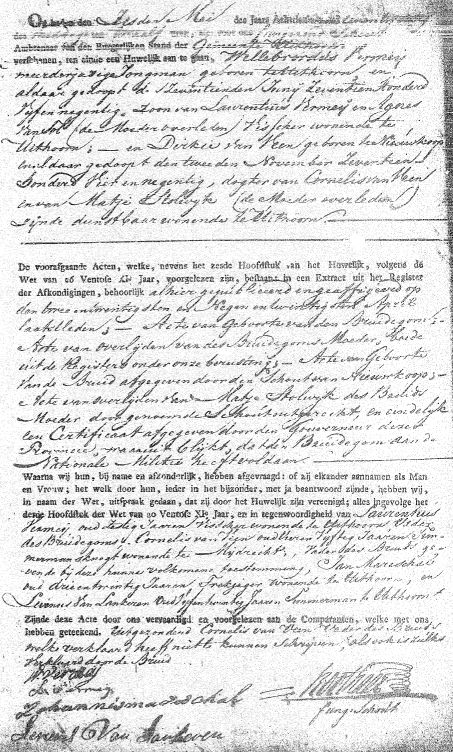 Op heden den Zesden Mei des Jaars Achttienhonderd
Ambtenaar van den Burgerlijken Stand der Gemeente Uithoorn
verschenen, ten einde een Huwelijk aan te gaan, Willebrordus Vermey
meerderjarige Jongman geboren te Uithoorn, en
aldaar gedoopt de Zeventienden Juny Zeventien honderd
Vijf en negentig, Zoon van Laurentius Vermey en Agnes
(de Moeder overleden) Visscher woonende te
Uithoorn; — en Dirkie van Veen geboren te Nieuwkoop
en aldaar gedoopt den tweeden November Zeventien
honderd Vier en negentig, dogter van Cornelis van Veen
en van Matje Stolwyk (de Moeder overleden)
zijnde dienstbaar woonende te Uithoorn
De voorafgaande Acten, welke, nevens het zesde Hoofdstuk van het Huwelijk, volgens de
Wet van 20 Ventose XIe Jaar, voorgelezen zijn, bestaan in een Extract uit het Register
der Afkondigingen, behoorlijk alhier gepubliceerd en geaffigeerd op
den twee en twintigsten en Negen en twintigsten April
laatstleden; — Acte van Geboorte van den Bruidegom; —
Acte van overlijden van des Bruidegoms Moeder, beide
uit de Registers onder onze berusting; — Acte van Geboorte
van de Bruid afgegeven door den Schout van Nieuwkoop; —
Acte van overlijden van Matje Stolwyk des Bruids
Moeder door genoemde Schout uitgereikt, en eindelijk
een Certificaat afgegeven door den Gouverneur dezer
Provincie, waaruit blijkt, dat de Bruidegom aan de
Nationale Militie heeft voldaan
Waarna wij hun, bij name en afzonderlijk, hebben afgevraagd: of zij elkander aannamen als Man
en Vrouw; het welk door hun, ieder in het bijzonder, met ja beantwoord zijnde, hebben wij,
in naam der Wet, uitspraak gedaan, dat zij door het Huwelijk zijn vereenigd; alles ingevolge het
derde Hoofdstuk der Wet van 20 Ventose XIe Jaar, en in tegenwoordigheid van Laurentius
Vermey, oud zestig Jaaren Visscher woonende te Uithoorn, Vader
des Bruidegoms; Cornelis van Veen oud Jaaren Tim-
mermansknegt woonende te Mijdrecht, Vader des Bruids ge-
vende bij deze hunne volkomene toestemming, Jan Mareschal
oud drie en twintig Jaaren woonende te Uithoorn, en
Levinus van Lankeren Jaaren Timmerman te Uithoorn
Zijnde deze Acte door ons vervaardigd en voorgelezen aan de Comparanten, welke met ons
hebben geteekend. uitgezonderd Cornelis van Veen Vader des Bruids
welke verklaard heeft niet te kunnen schrijven, als ook is zulks
verklaard door de Bruid
W Vermey
Vermey
Johannis mareschal
Levinus Van Lankeren
fung. Schout